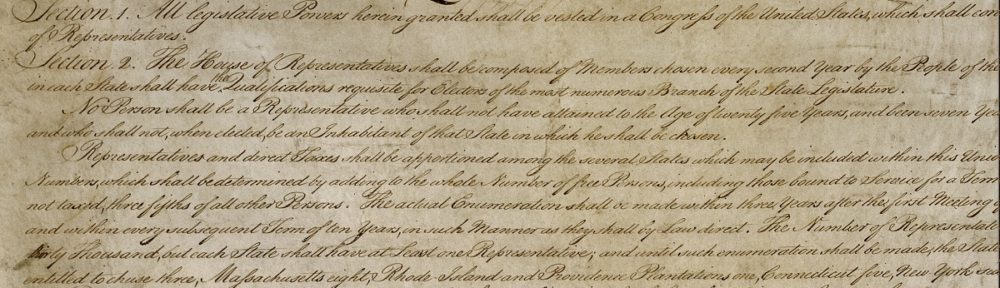 Section. 1. All legislative Powers herein granted shall be vested in a Congress of the United States, which shall con
of Representatives.
Section. 2. The House of Representatives shall be composed of Members chosen every second Year by the People of the
in each State shall have the Qualifications requisite for Electors of the most numerous Branch of the State Legislature.
No Person shall be a Representative who shall not have attained to the Age of twenty five Years, and been seven Yea
and who shall not, when elected, be an Inhabitant of that State in which he shall be chosen.
Representatives and direct Taxes shall be apportioned among the several States which may be included within this Unio
Numbers, which shall be determined by adding to the whole Number of free Persons, including those bound to Service for a Term
not taxed, three fifths of all other Persons. The actual Enumeration shall be made within three Years after the first Meeting
and within every subsequent Term of ten Years, in such Manner as they shall by Law direct. The Number of Representati
thirty Thousand, but each State shall have at Least one Representative; and until such enumeration shall be made, the State
entitled to chuse three, Massachusetts eight, Rhode-Island and Providence Plantations one, Connecticut five, New-York